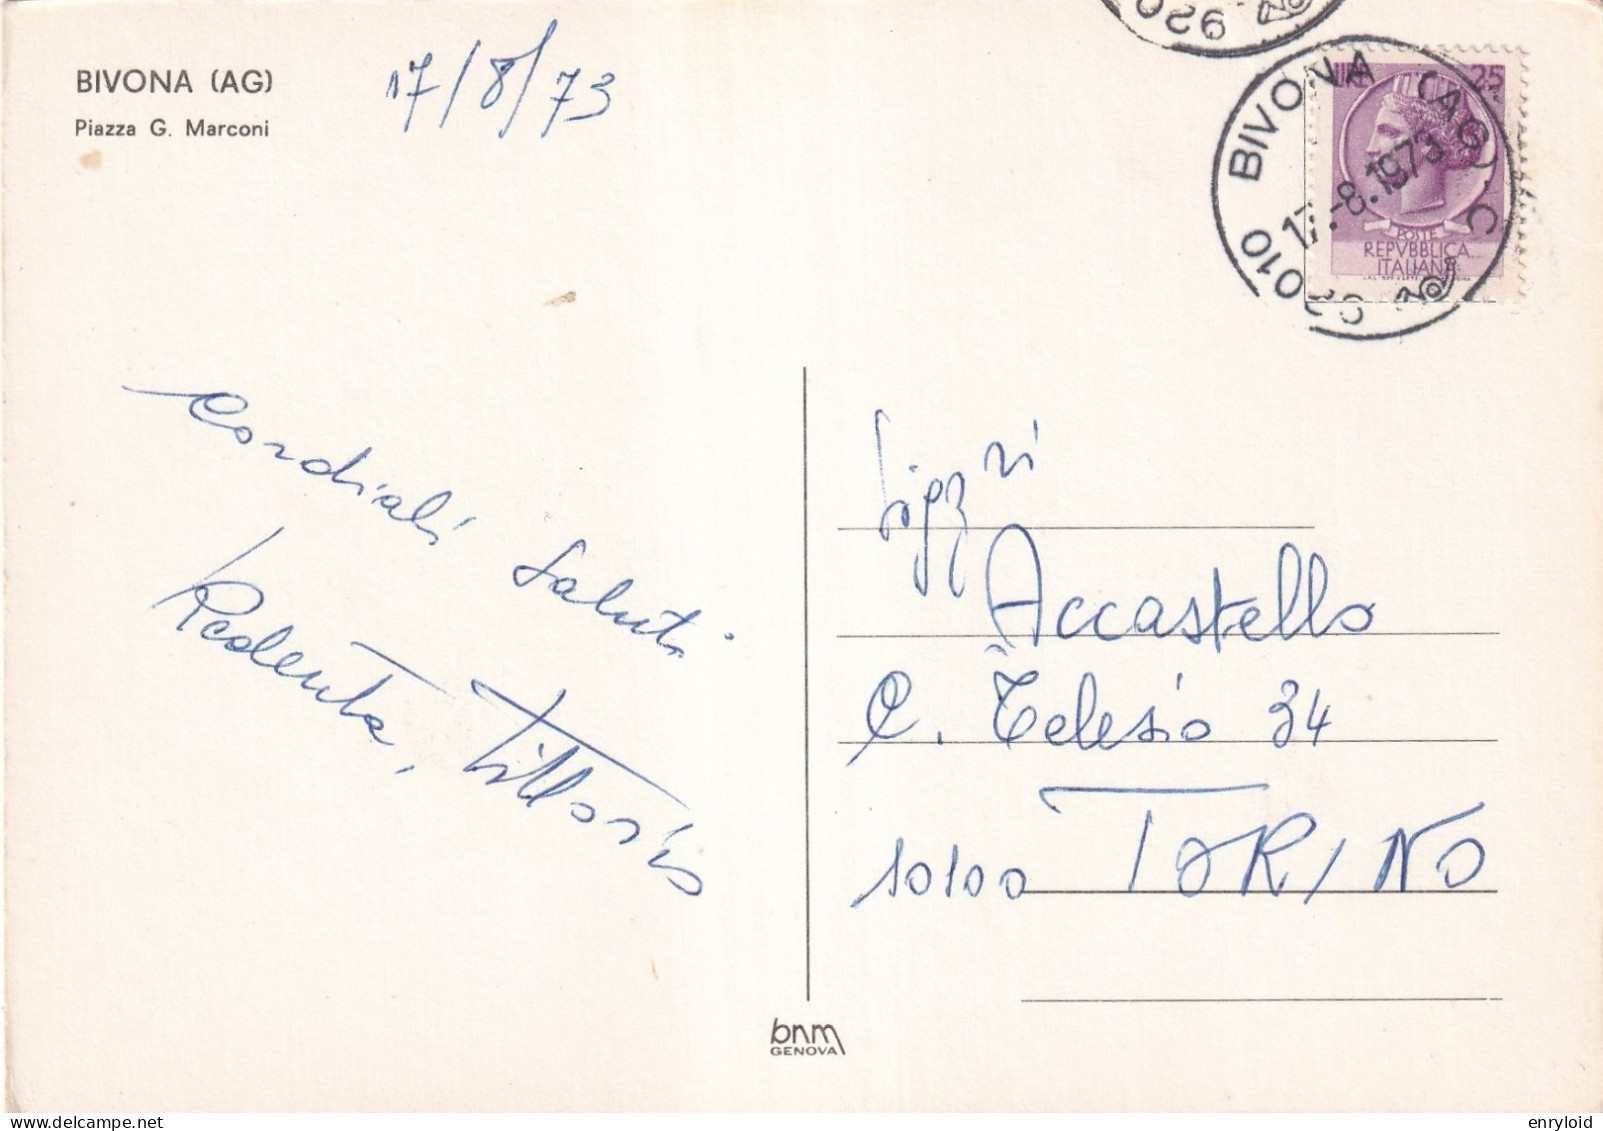 BIVONA (AG)
Piazza G. Marconi
17/8/73
920
92010 BIVONA (AG) C
17.-8.1973
LIRE 25
POSTE
REPVBBLICA
ITALIANA
Cordiali Saluti
Redenta, Vittorio
Sigg ri
Accastello
C. Telesio 34
10100 TORINO
bnm
GENOVA
enryloid